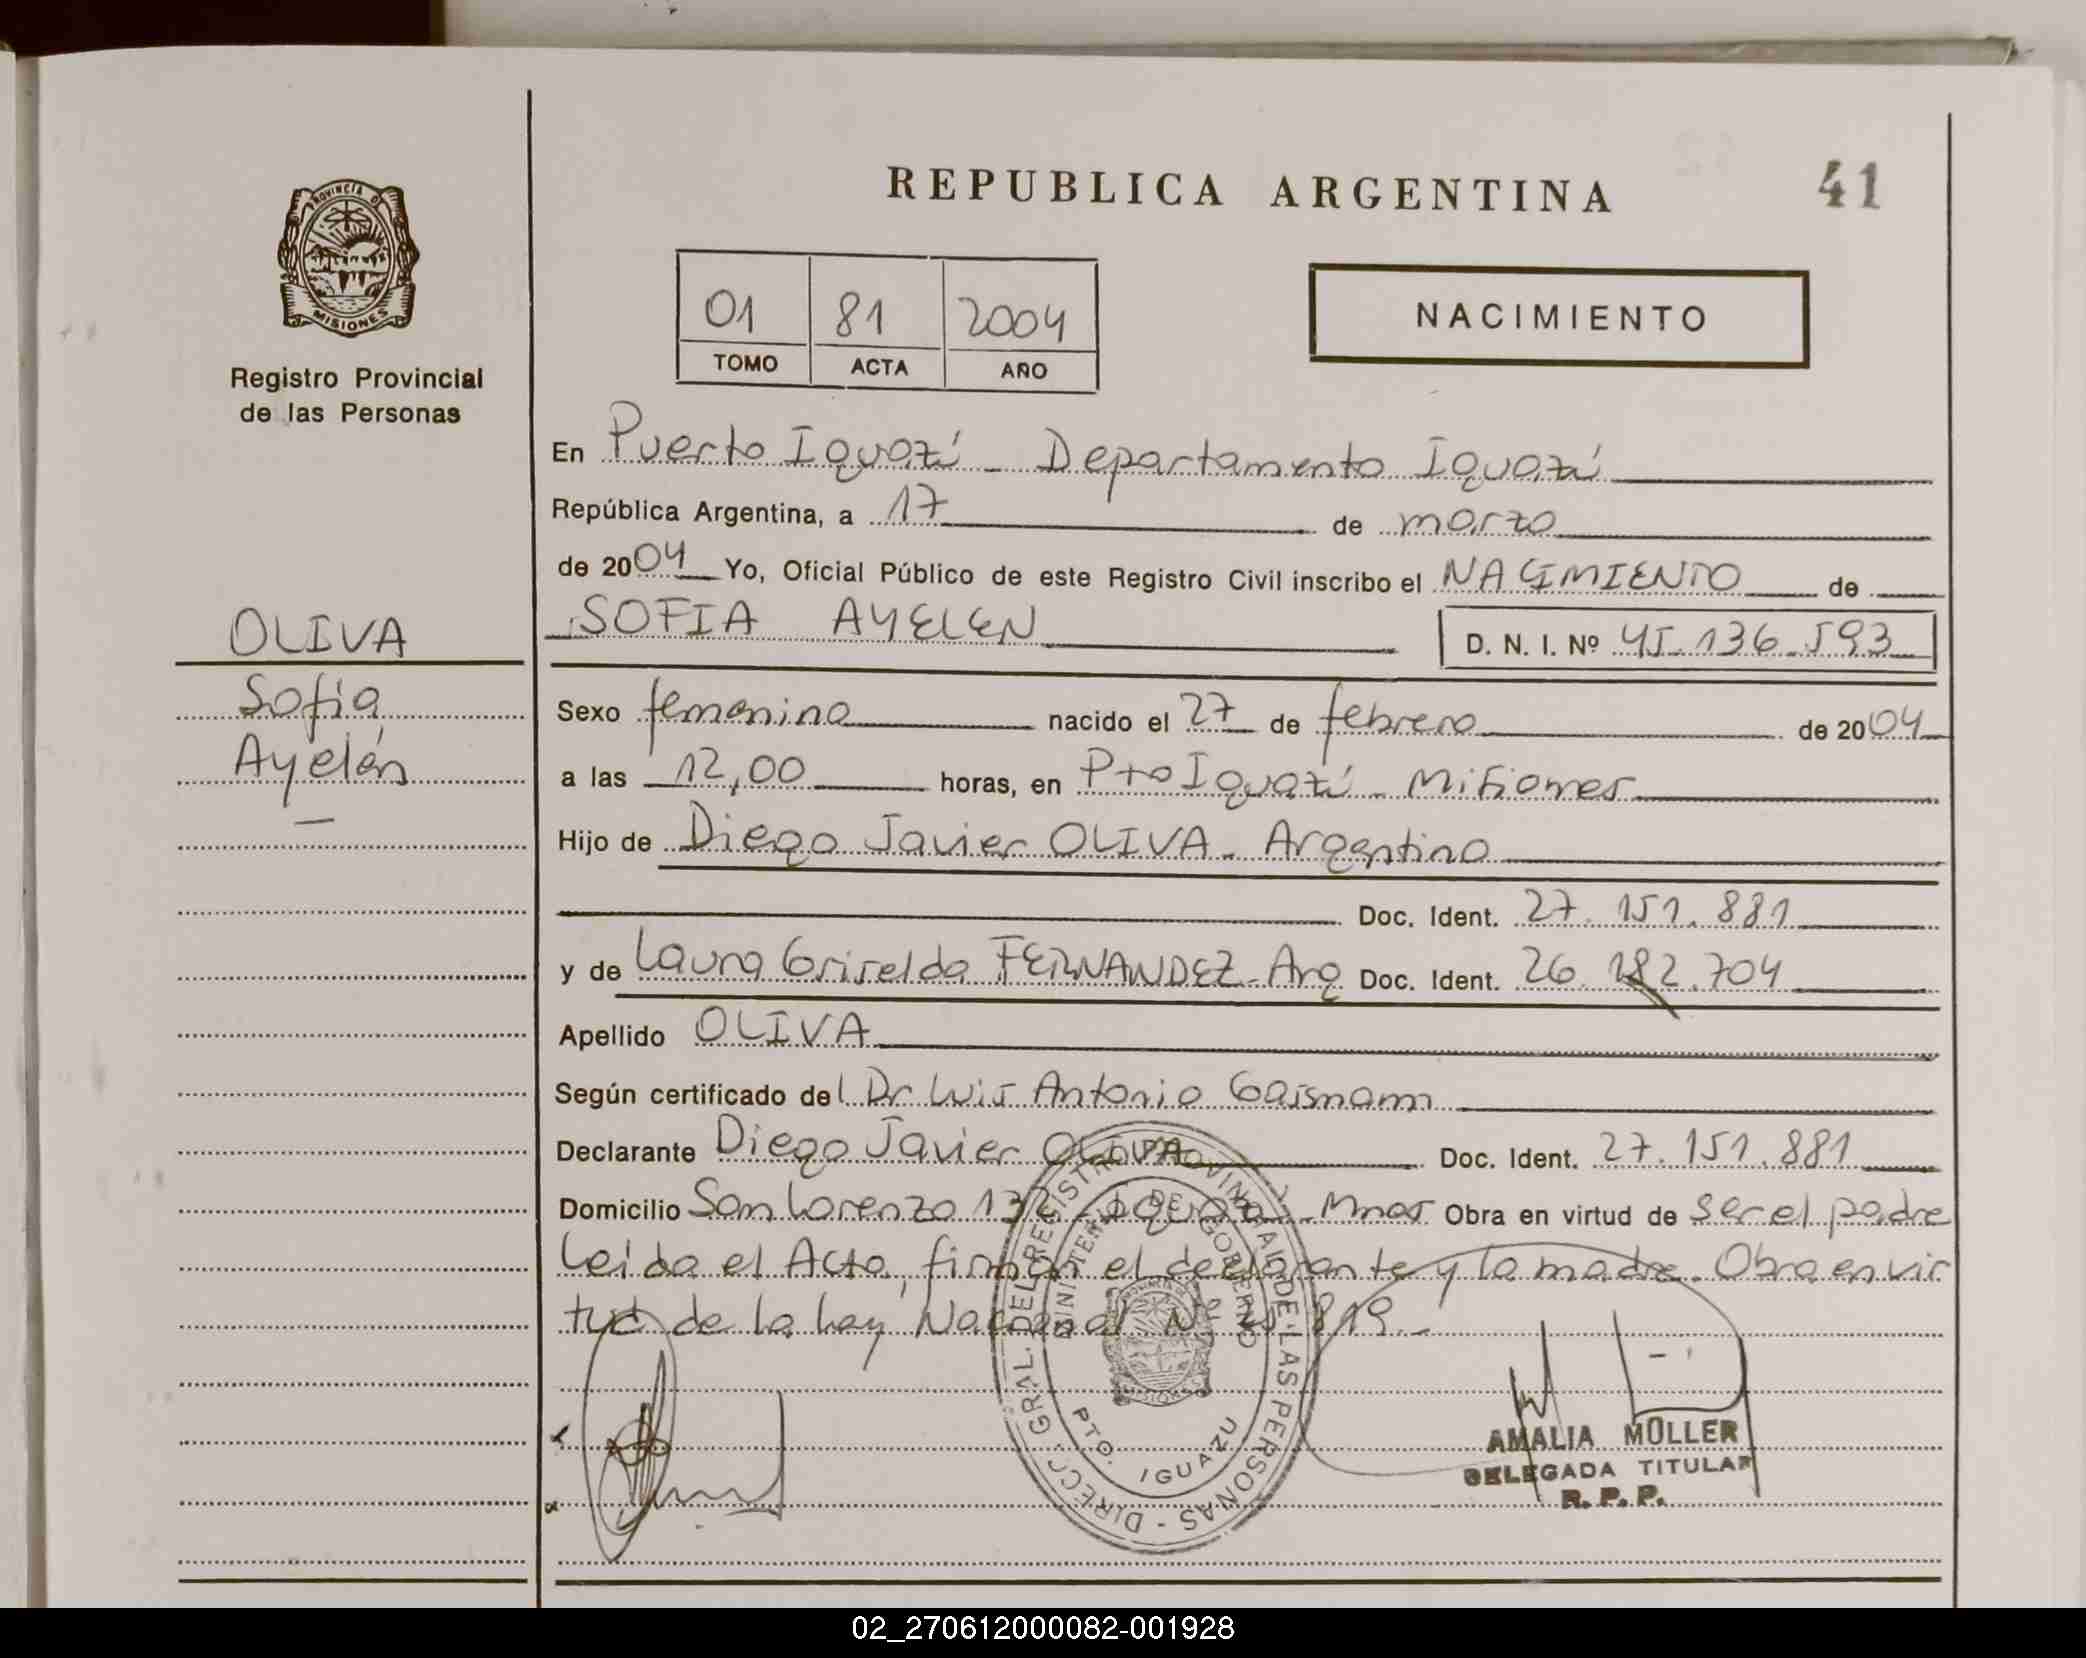 REPUBLICA ARGENTINA
41
PROVINCIA D
MISIONES
Registro Provincial
de las Personas
01 81 2004
TOMO ACTA AÑO
NACIMIENTO
En Puerto Iguazú - Departamento Iguazú
República Argentina, a 17 de marzo
de 2004 Yo, Oficial Público de este Registro Civil inscribo el NACIMIENTO de
SOFIA AYELEN
D. N. I. Nº 45.136.593
OLIVA
Sofia
Ayelén
Sexo femenino nacido el 27 de febrero de 2004
a las 12,00 horas, en Pto Iguazú - Misiones
Hijo de Diego Javier OLIVA - Argentino
Doc. Ident. 27.151.881
y de Laura Griselda FERNANDEZ - Arg Doc. Ident. 26.182.704
Apellido OLIVA
Según certificado del Dr Luis Antonio Gaismann
Declarante Diego Javier OLIVA Doc. Ident. 27.151.881
Domicilio San Lorenzo 132 - Iguazú - Mnes Obra en virtud de ser el padre
Leida el Acta, firman el declarante y la madre. Obra en vir
tud de la Ley Nacional Nº 25.819.-
DIRECC. GRAL. DEL REGISTRO PROVINCIAL DE LAS PERSONAS -
MINISTERIO DE GOBIERNO
MISIONES
PTO. IGUAZU
AMALIA MÜLLER
DELEGADA TITULAR
R. P. P.
02_270612000082-001928